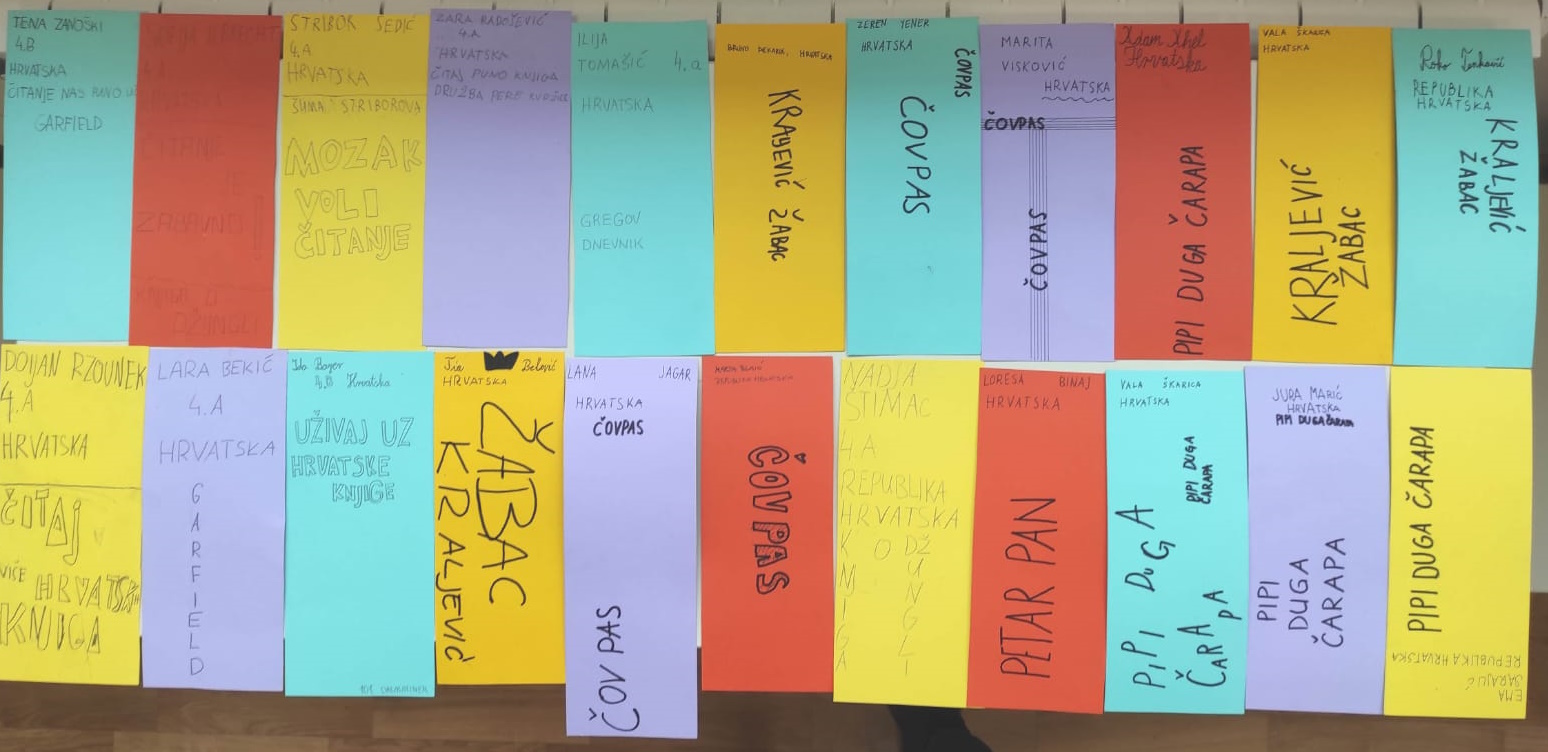 TENA ZANOŠKI
4.B
HRVATSKA
ČITANJE NAS
GARFIELD
ČITANJE
JE
ZABAVNO
KNJIGA O
DŽUNGLI
STRIBOR SEDIĆ
4.A
HRVATSKA
ŠUMA STRIBOROVA
MOZAK
VOLI
ČITANJE
ZARA RADOŠEVIĆ
4.A
HRVATSKA
ČITAJ PUNO KNJIGA
DRUŽBA PERE KVRŽICE
ILIJA
TOMAŠIĆ 4.a
HRVATSKA
GREGOV
DNEVNIK
HRVATSKA
KRALJEVIĆ ŽABAC
ZEREN YENER
HRVATSKA
ČOVPAS
ČOVPAS
MARITA
VISKOVIĆ
HRVATSKA
ČOVPAS
ČOVPAS
Adam
Hrvatska
PIPI DUGA ČARAPA
VALA ŠKARICA
HRVATSKA
KRALJEVIĆ
ŽABAC
Roko
REPUBLIKA
HRVATSKA
KRALJEVIĆ
ŽABAC
DOJAN RZOUNEK
4.A
HRVATSKA
ČITAJ
VIŠE HRVATSKIH
KNJIGA
LARA BEKIĆ
4.A
HRVATSKA
GARFIELD
4.B Hrvatska
UŽIVAJ UZ
HRVATSKE
KNJIGE
Tia Belović
HRVATSKA
ŽABAC
KRALJEVIĆ
LANA JAGAR
HRVATSKA
ČOVPAS
ČOVPAS
REPUBLIKA HRVATSKA
ČOVPAS
NADJA
ŠTIMAC
4.A
REPUBLIKA
HRVATSKA
KNJIGA
O
DŽUNGLI
LORESA BINAJ
HRVATSKA
PETAR PAN
VALA ŠKARICA
HRVATSKA
PIPI DUGA
ČARAPA
PIPI DUGA
ČARAPA
JURA MARIĆ
HRVATSKA
PIPI DUGA ČARAPA
PIPI
DUGA
ČARAPA
PIPI DUGA ČARAPA
EMA
SARAJLIĆ
REPUBLIKA HRVATSKA